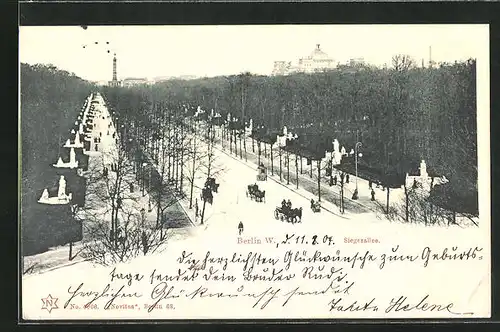 Berlin W., d. 11. 2. 04. Siegesallee.
Die herzlichen Glückwünsche zum Geburts-
tage sendet dein Bruder Rudi
Herzlichen Glückwunsch sendet Tante Helene
No. 1006. „Novitas“, Berlin 42.